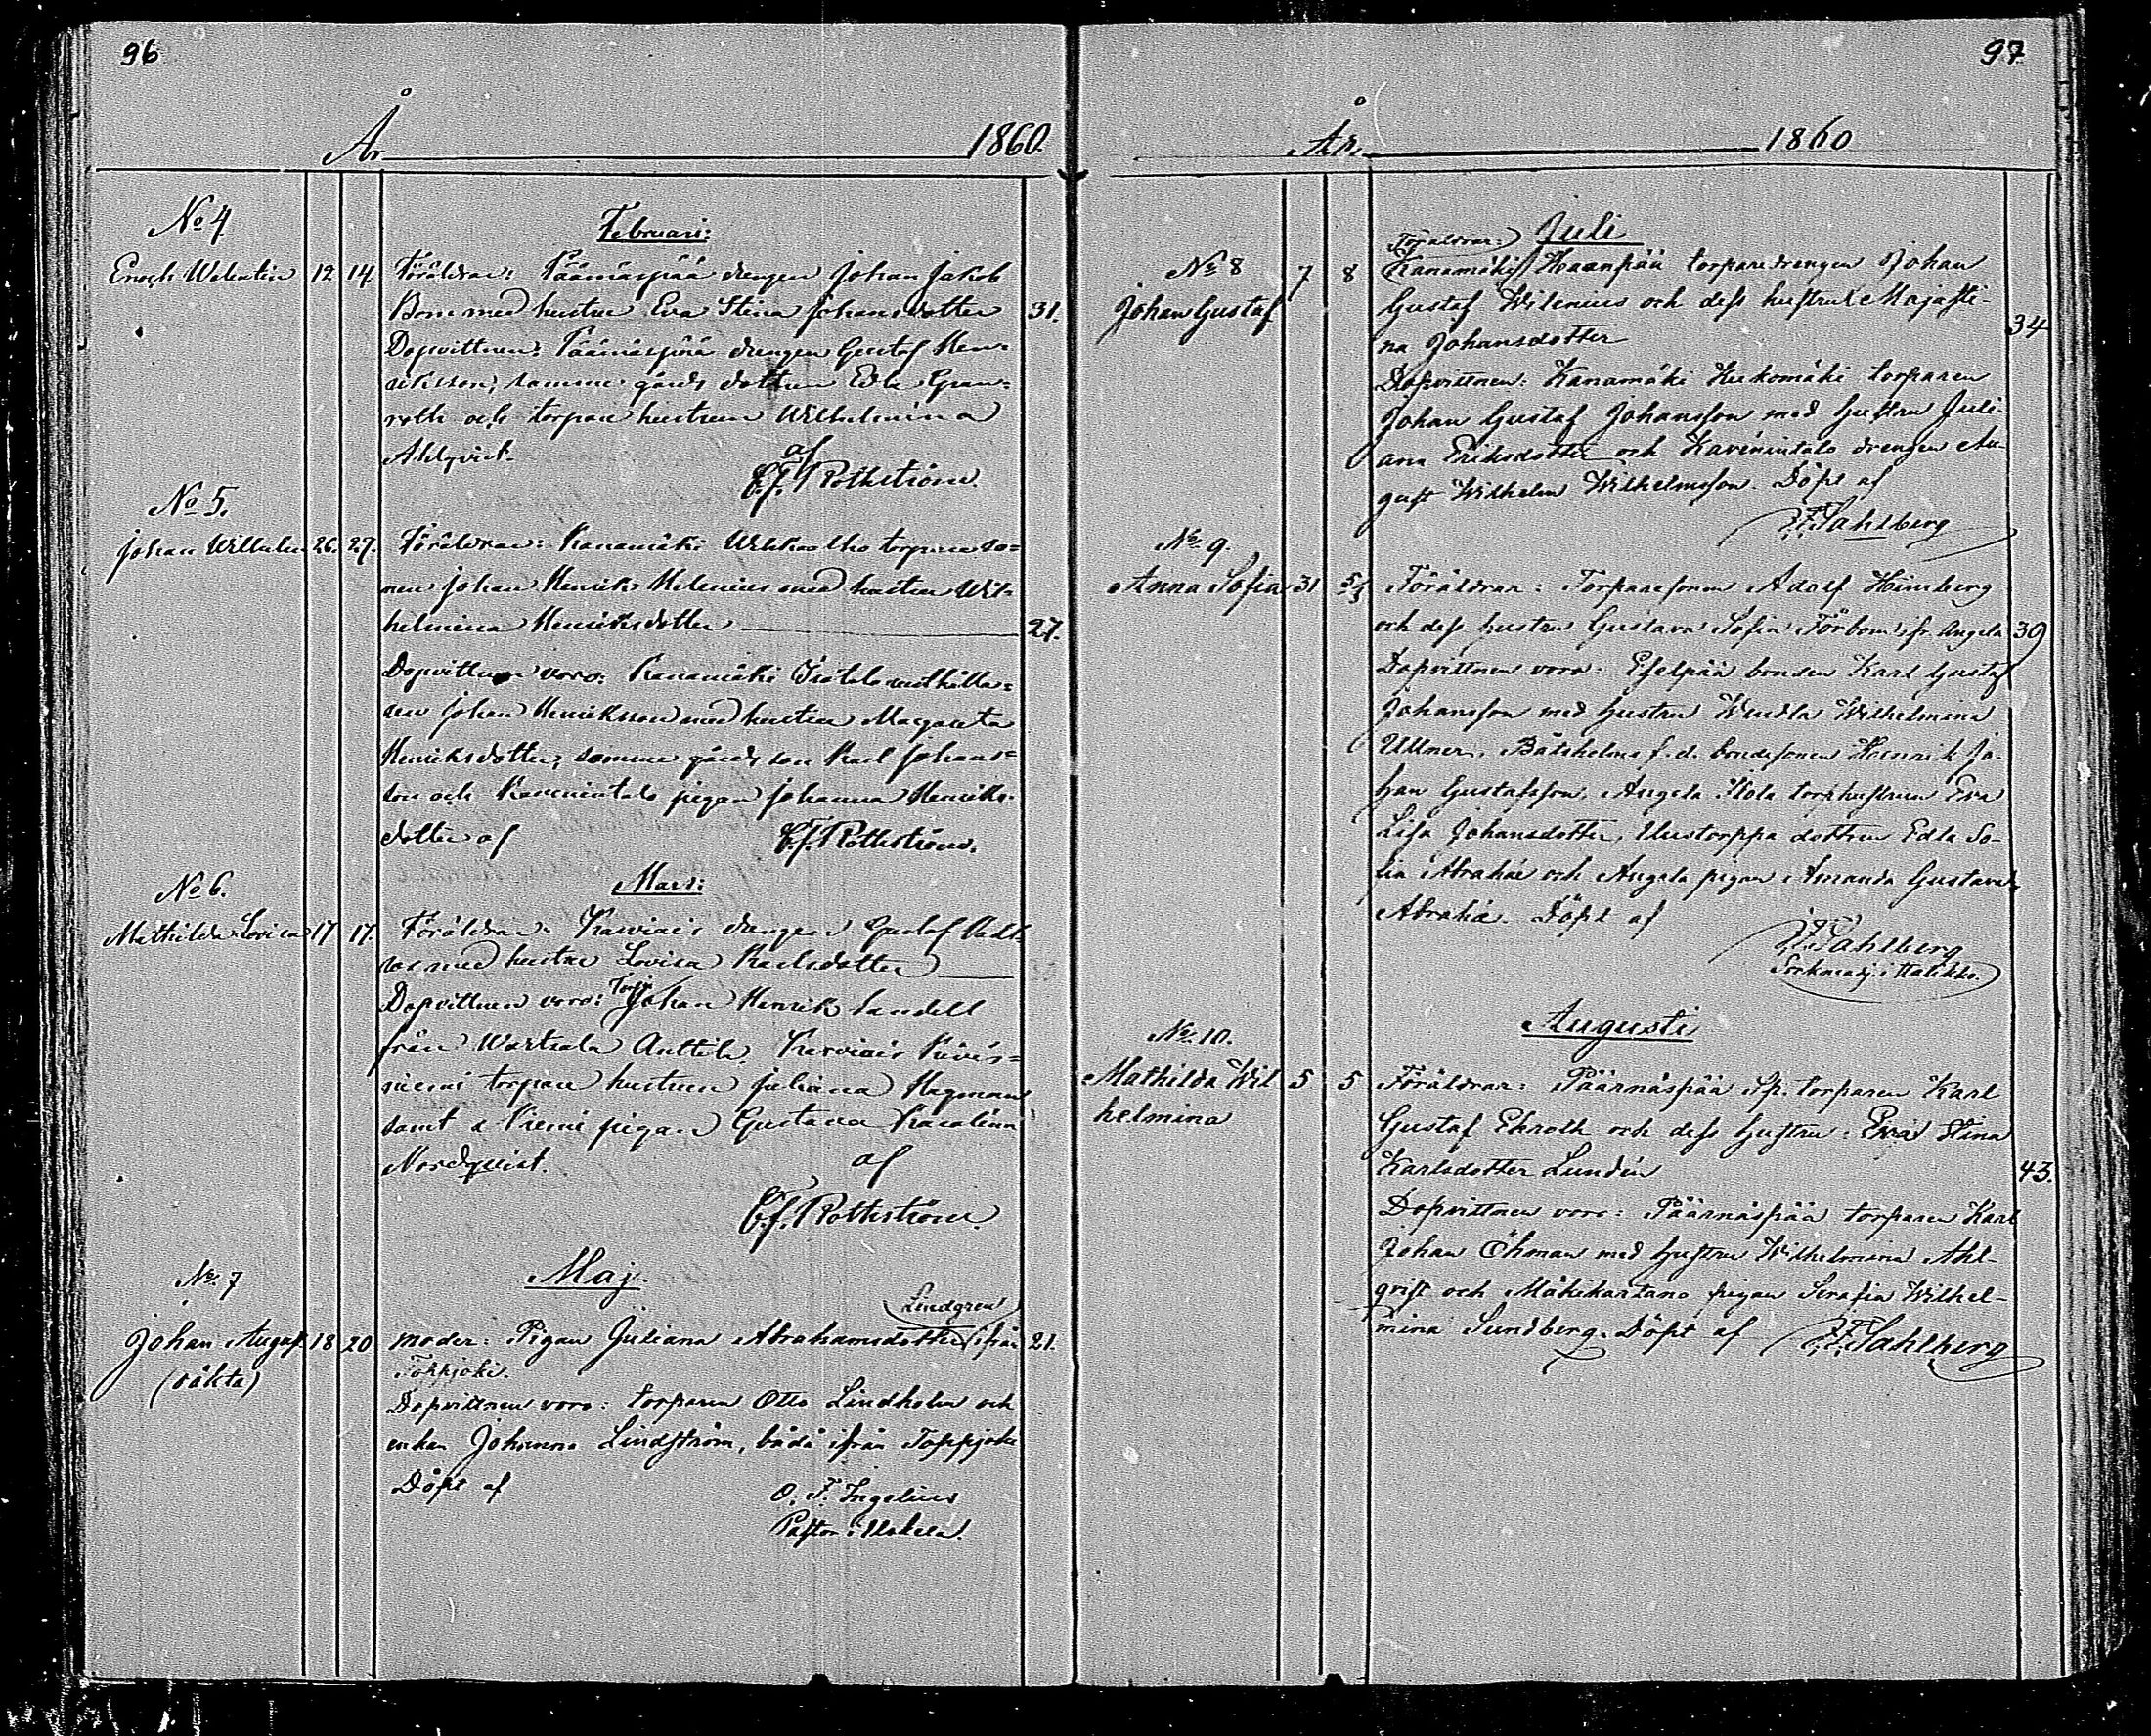 96
År 1860.
No 4.
Februari:
Enoch Walentin 12 14. Föräldrar: Päärnäspää drengen Johan Jakob
Bom med hustru Eva Stina Johansdotter 31.
Dopvittnen: Päärnäspää drengen Gustaf Hen-
riksson, samme gårds dottren Edla Gran-
roth och torpare hustrun Wilhelmina
Ahlqvist. af
C.J. Rothström.
No 5.
Johan Wilhelm 26. 29. Föräldrar: Kanamäki torpare so-
nen Johan Henrik Helenius med hustru Wil-
helmina Henriksdotter 27.
Dopvittnen voro: Kanamäki Isotalo
Johan Henriksson med hustru Margareta
Henriksdotter, samme gårds son Karl Johans-
son och pigan Johanna Henriks-
dotter af C.J. Rothström.
No 6.
Mars:
Mathilda Lovisa 17 17. Föräldrar: drengen Gustaf
med hustru Lovisa Karlsdotter
Dopvittnen voro: Torp. Johan Henrik Sandell
från Wartsala Anttila,
niemi torpare hustrun Juliana Hagman
samt Niemi pigan Gustava Karolina
Nordqvist. af
C.J. Rothström.
No. 7
Maj.
Lindgren
Johan August 18 20 moder: Pigan Juliana Abrahamsdotter ifrån 21.
(oäkta) Toppjoki.
Dopvittnen voro: torparen Otto Lindholm och
enkan Johanna Lindström, båda ifrån Toppjoki
Döpt af O. F. Ingelius
Pastor i Uskela.
97
År 1860
Juli
Föräldrar:
No 8 7 8 Kanamäki Haanpää torpare drengen Johan
Johan Gustaf Gustaf Wilenius och dess hustru Majasti-
na Johansdotter 34
Dopvittnen: Kanamäki Kukomäki torparen
Johan Gustaf Johansson med hustru Juli-
ana Eriksdotter och drengen Au-
gust Wilhelm Wilhelmsson. Döpt af
F. Sahlberg
No. 9.
Anna Sofia 31 5/8 Föräldrar: Torparesonen Adolf Himberg
och dess hustru Gustava Sofia Förbom, fr. Angela 39
Dopvittnen voro: bonden Karl Gustaf
Johansson med hustru Wendla Wilhelmina
Ullner, Båtshelms f.d. bondesonen Henrik Jo-
han Gustafsson, Angela torphustrun Eva
Lisa Johansdotter, Uustorppa dottren Edla So-
fia Abrahá och Angela pigan Amanda Gustava
Abrahá. Döpt af
F. Sahlberg
Sockenadj. i Halikko.
Augusti
No. 10.
Mathilda Wil 5 5 Föräldrar: Päärnäspää Sp. torparen Karl
helmina Gustaf Ekroth och dess hustru: Eva Stina
Karlsdotter Lundén 43.
Dopvittnen voro: Päärnäspää torparen Karl
Johan Öhman med hustru Wilhelmina Ahl-
qvist och Mäkikartano pigan Serafia Wilhel-
mina Sundberg. Döpt af F. Sahlberg